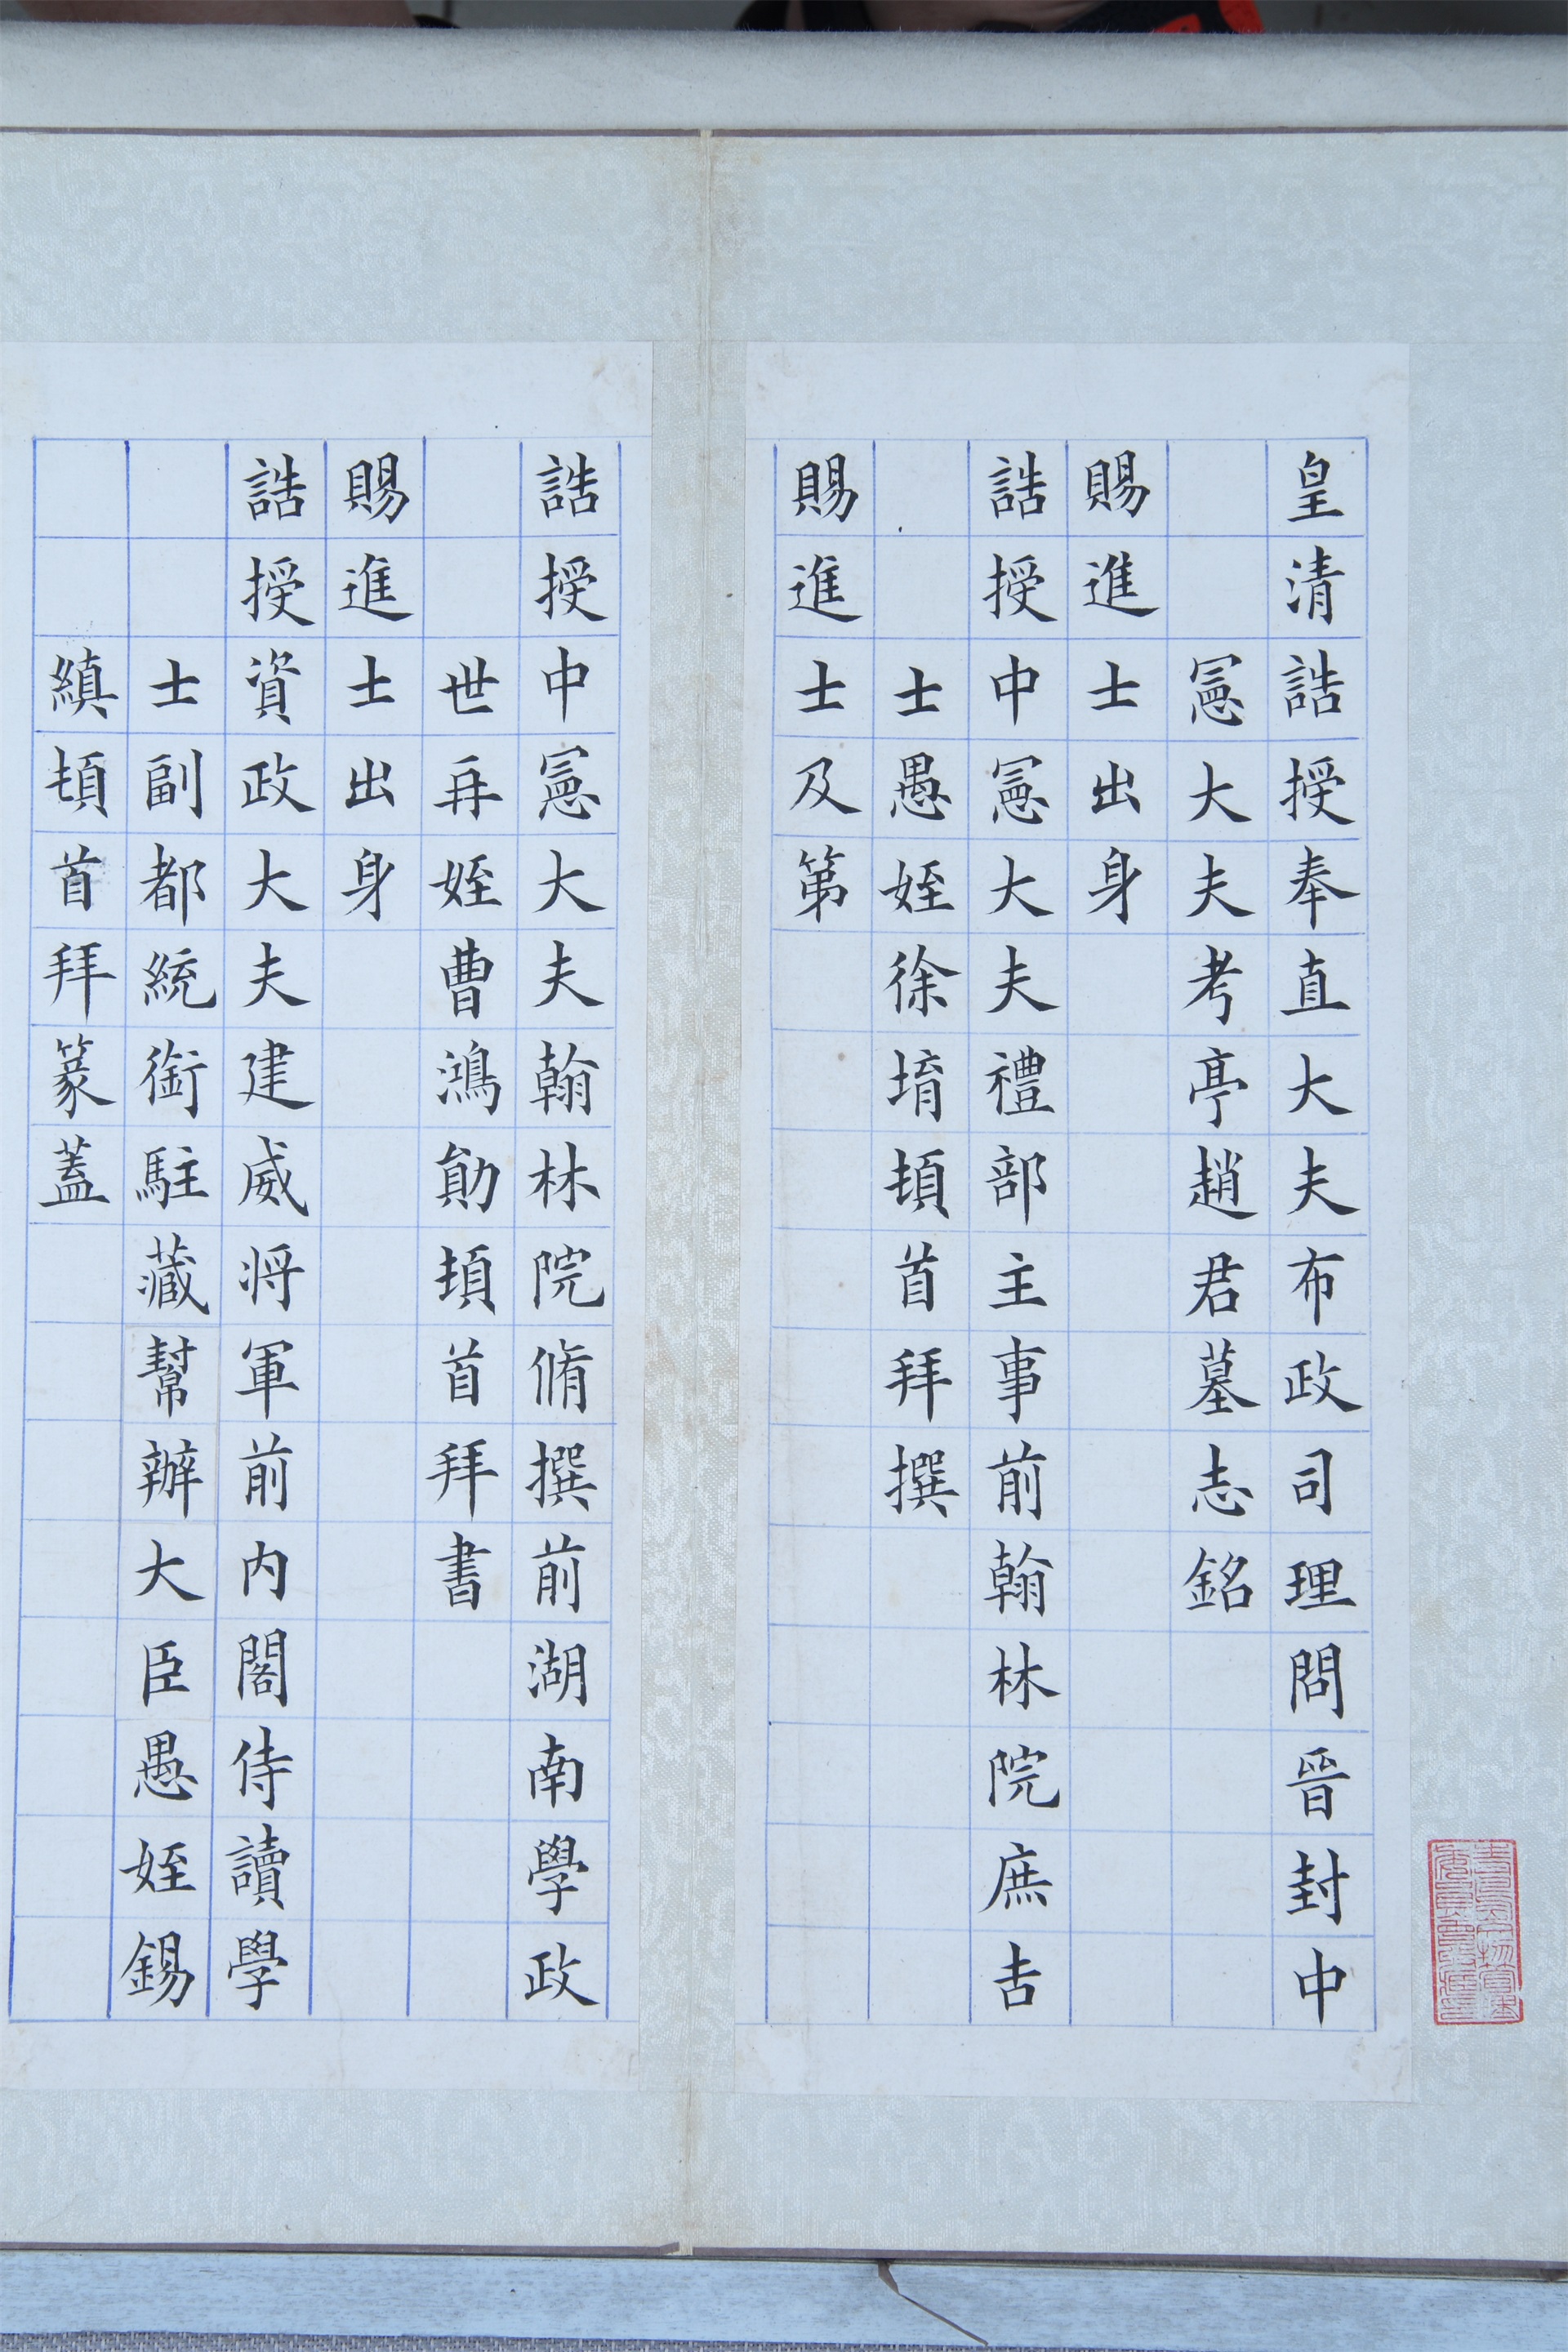 皇清誥授奉直大夫布政司理問晉封中
憲大夫考亭趙君墓志銘
賜進士出身
誥授中憲大夫禮部主事前翰林院庶吉
士愚姪徐堉頓首拜撰
賜進士及第
誥授中憲大夫翰林院脩撰前湖南學政
世再姪曹鴻勛頓首拜書
賜進士出身
誥授資政大夫建威将軍前内閣侍讀學
士副都統銜駐藏幫辦大臣愚姪錫
縝頓首拜篆蓋